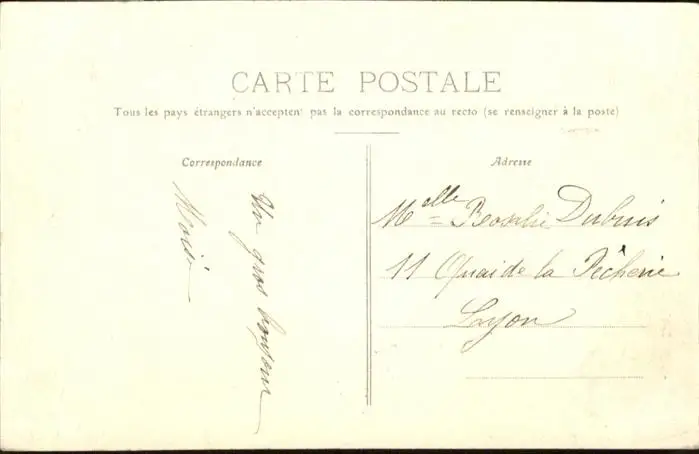 CARTE POSTALE
Tous les pays étrangers n'acceptent pas la correspondance au recto (se renseigner à la poste)
Correspondance
Un gros bonjour
Adresse
Melle Rosalie Dubuis
11 Quai de la Pêcherie
Lyon